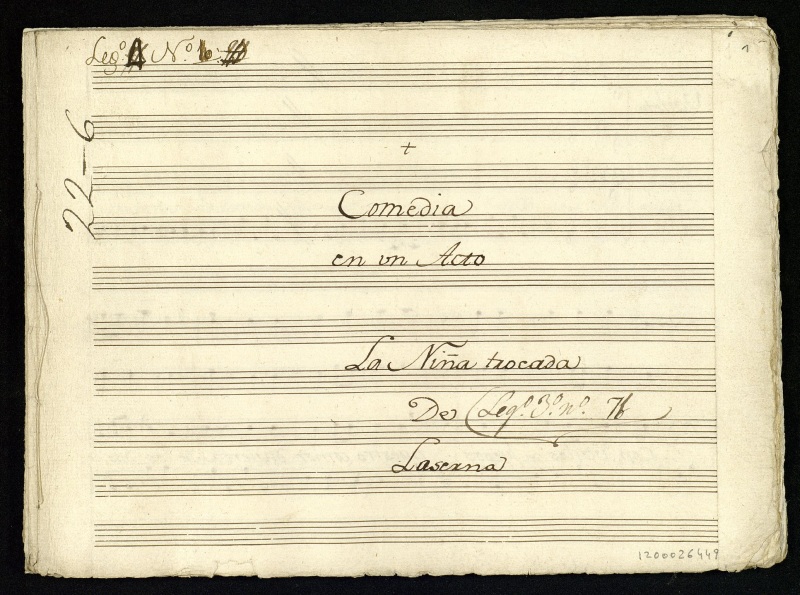 Leg.º Nº 16
1
22-6
+
Comedia
en vn Acto
La Niña trocada
De Leg.º 3.º nº. 76
Laserna
1200026449